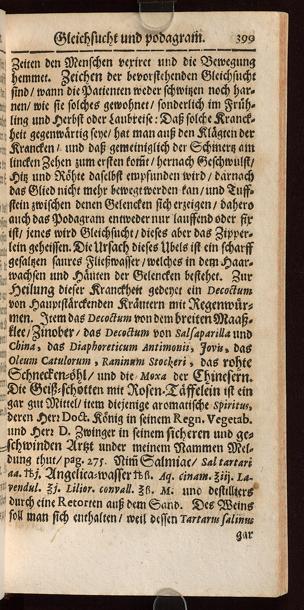 Gleichsucht und podagram. 399
Zeiten den Menschen vexiret und die Bewegung
hemmet. Zeichen der bevorstehenden Gleichsucht
sind/ wann die Patienten weder schwitzen noch har-
nen/ wie sie solches gewohnet/ sonderlich im Früh-
ling und Herbst oder Laubreise: Daß solche Kranck-
heit gegenwärtig seye/ hat man auß den Klägten der
Krancken/ und daß gemeiniglich der Schmertz am
lincken Zehen zum ersten kom̃t/ hernach Geschwulst/
Hitz und Röhte daselbst empfunden wird/ darnach
das Glied nicht mehr bewegt werden kan/ und Tuff-
stein zwischen denen Gelencken sich erzeigen/ dahero
auch das Podagram entweder nur lauffend oder fix
ist/ jenes wird Gleichsucht/ dieses aber das Zipper-
lein geheissen. Die Ursach dieses Ubels ist ein scharff
gesaltzen saures Fließwasser/ welches in dem Haar-
wachsen und Häuten der Gelencken bestehet. Zur
Heilung dieser Kranckheit gedeyet ein Decoctum
von Hauptstärckenden Kräutern mit Regenwür-
men. Item das Decoctum von dem breiten Maaß-
klee/ Zinober/ das Decoctum von Salsaparilla und
China, das Diaphoreticum Antimonii, Jovis, das
Oleum Catulorum, Raninum Stockeri, das rohte
Schnecken-öhl/ und die Moxa der Chinesern.
Die Geiß-schotten mit Rosen-Täffelein ist ein
gar gut Mittel/ item diejenige aromatische Spiritus,
deren Herr Doct. König in seinem Regn. Vegetab.
und Herr D. Zwinger in seinem sicheren und ge-
schwinden Artzt under meinem Nammen Mel-
dung thut/ pag. 275. Nim̃ Salmiac/ Sal tartari
aa. ℔j. Angelica-wasser ℔ß. Aq. cinam. ℥iij. La-
vendul. ℥j. Lilior. convall. ℥ß. M. und destilliers
durch eine Retorten auß dem Sand. Des Weins
soll man sich enthalten/ weil dessen Tartarus salinus
gar